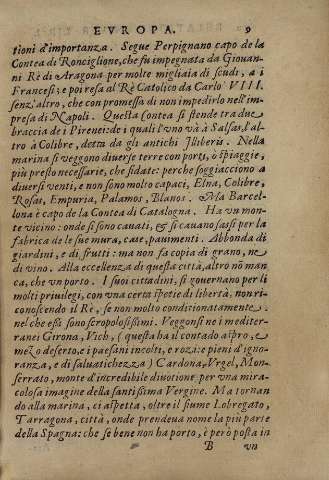 EVROPA. 9
tioni d'importanza. Segue Perpignano capo de la
Contea di Ronciglione, che fu impegnata da Giouan-
ni Rè di Aragona per molte migliaia di scudi, a i
Francesi; e poi resa al Rè Catolico da Carlo VIII.
senz'altro, che con promessa di non impedirlo nell'im-
presa di Napoli. Questa contea si stende tra due
braccia de i Pirenei: de i quali l'vno và à Salsas, l'al-
tro à Colibre, detta da gli antichi Illiberis. Nella
marina si veggono diuerse terre con porti, ò spiaggie,
più presto necessarie, che fidate: perche soggiacciono a
diuersi venti, e non sono molto capaci, Elna, Colibre,
Rosas, Empuria, Palamos, Blanos. Ma Barcel-
lona è capo de la Contea di Catalogna. Ha vn mon-
te vicino: onde si sono cauati, & si cauano sassi per la
fabrica de le sue mura, case, pauimenti. Abbonda di
giardini, e di frutti: ma non fa copia di grano, ne
di vino. Alla eccellenza di questa città, altro nō man-
ca, che vn porto. I suoi cittadini, si gouernano per li
molti priuilegi, con vna certa spetie di libertà, non ri-
conoscendo il Rè, se non molto conditionatamente.
nel che essi sono scropolosissimi. Veggonsi ne i mediter-
ranei Girona, Vich, (questa ha il contado aspro, e
mezo deserto, e i paesani incolti, e rozi: e pieni d'igno-
ranza, e di saluatichezza) Cardona, Vrgel, Mon-
serrato, monte d'incredibile diuotione per vna mira-
colosa imagine della santissima Vergine. Ma tornan
do alla marina, ci aspetta, oltre il fiume Lobregato,
Tarragona, città, onde prendeua nome la più parte
della Spagna: che se bene non ha porto, è però posta in
B vn